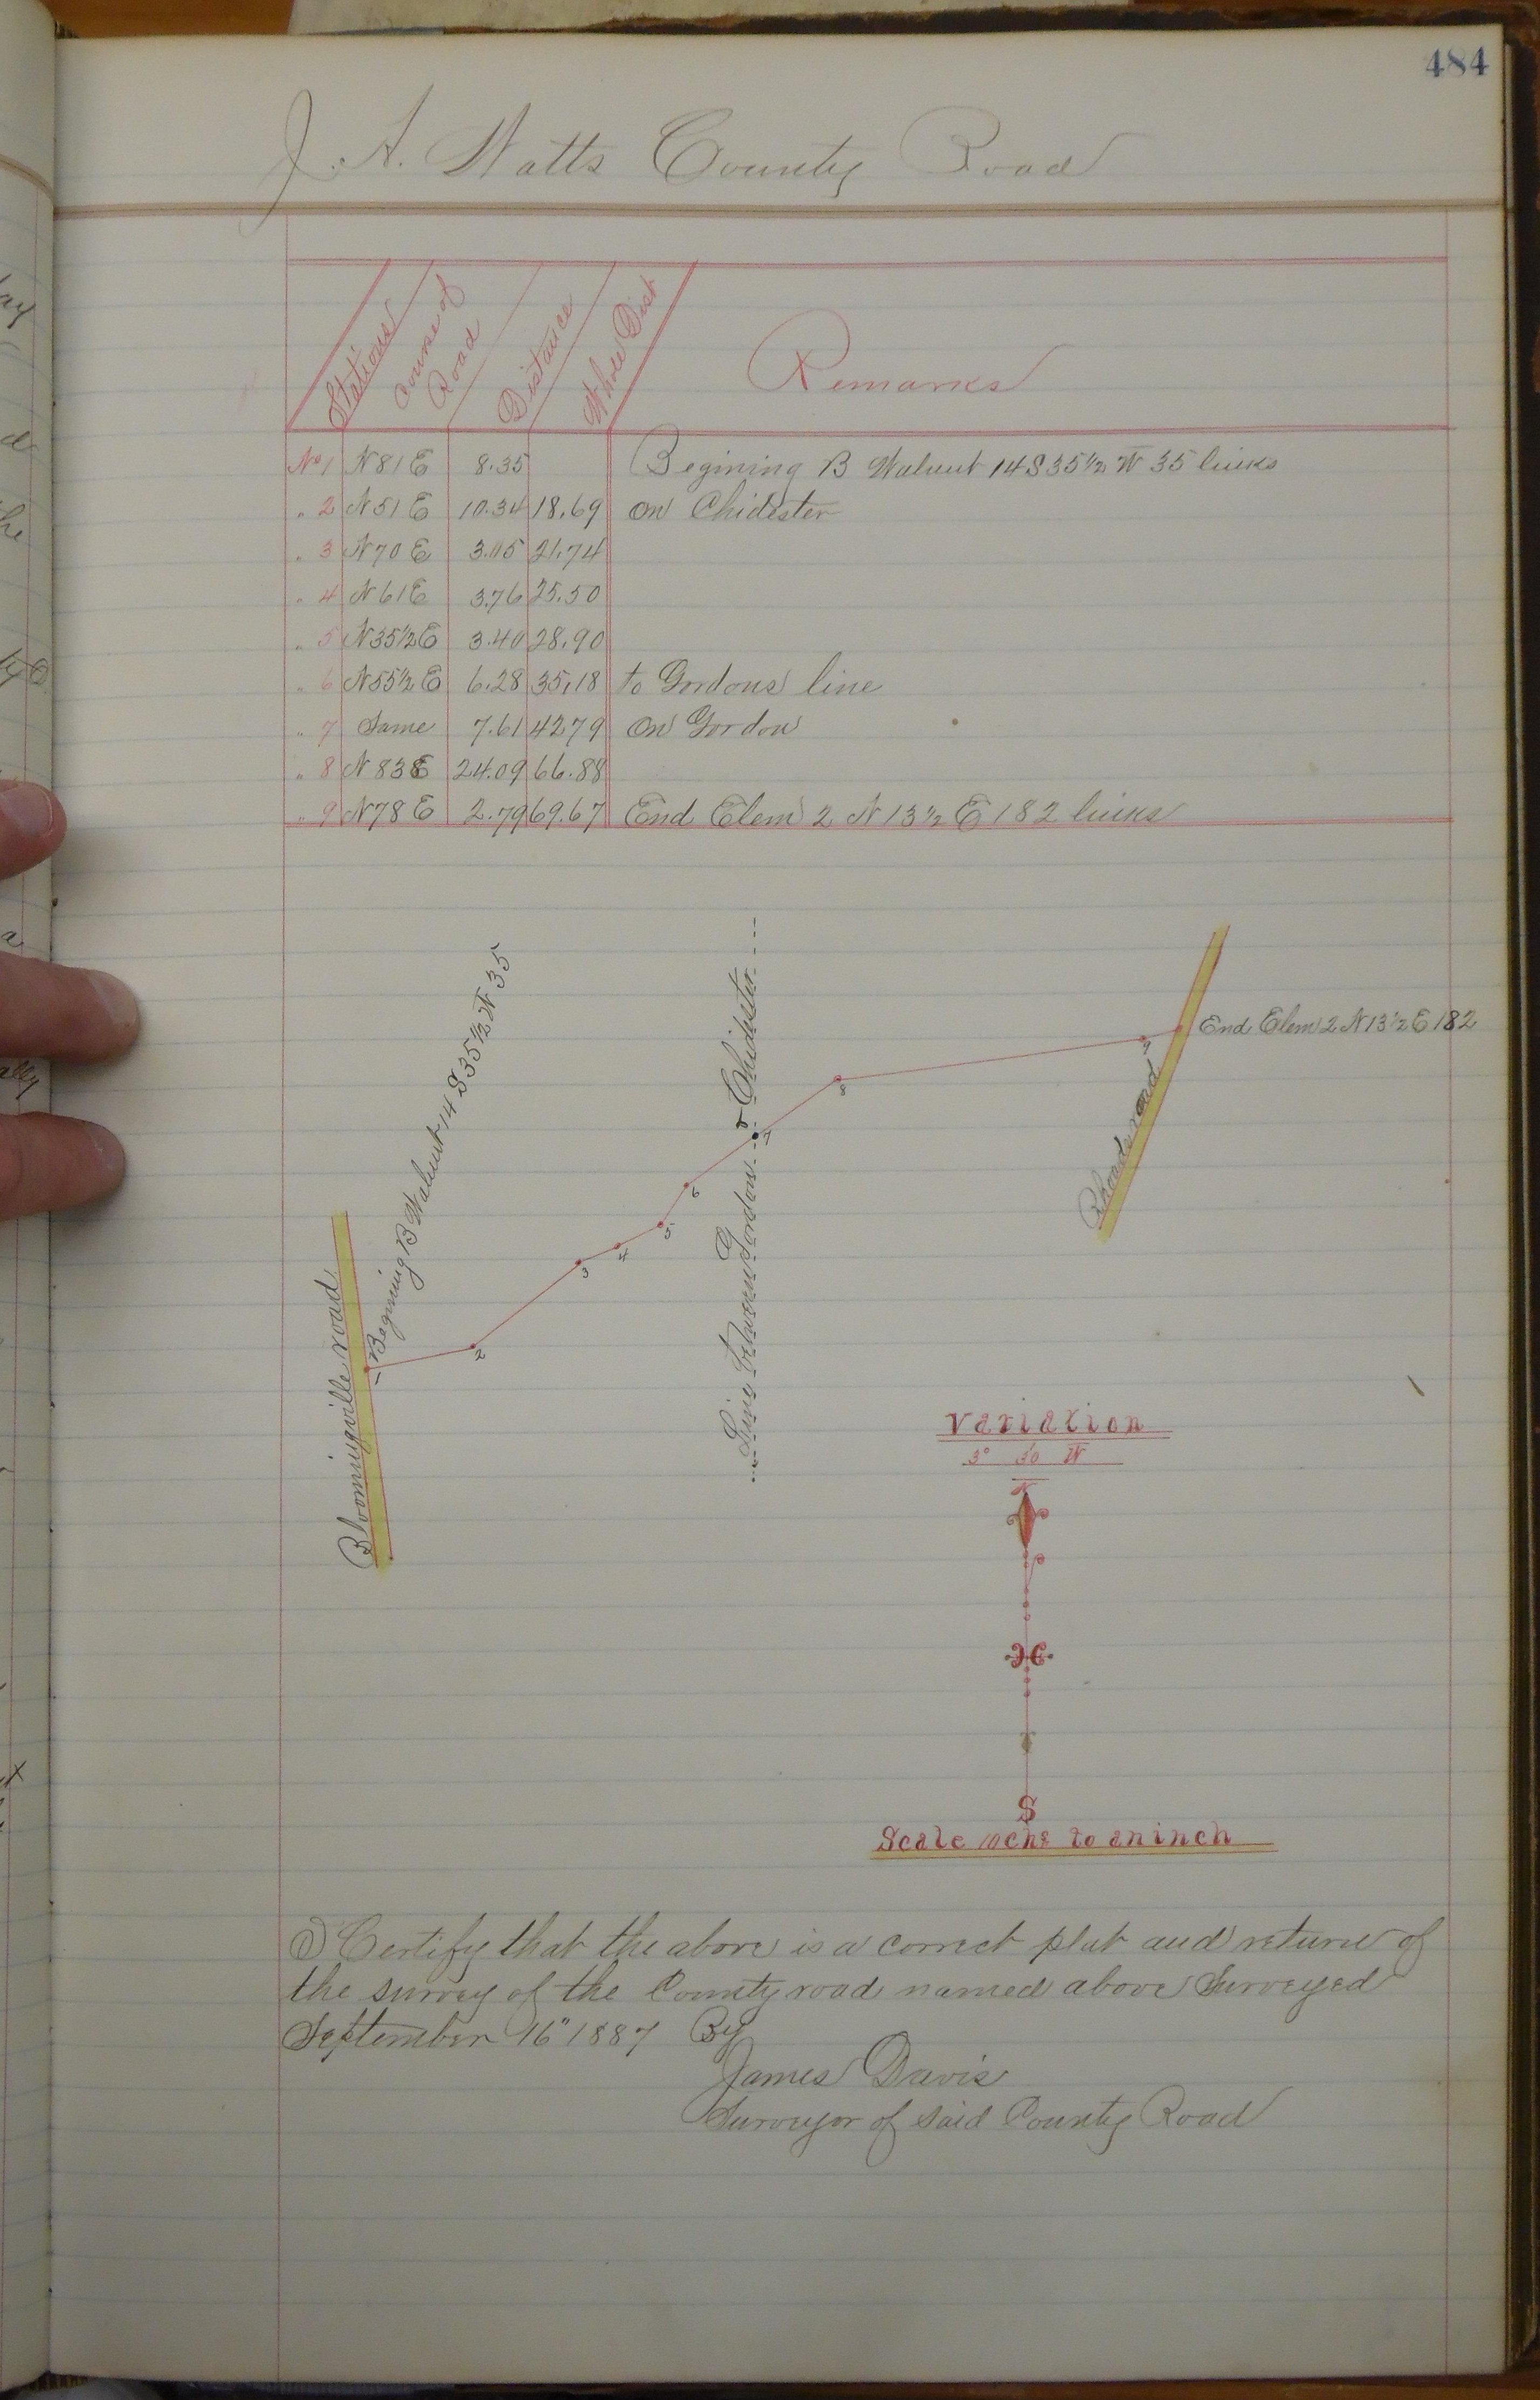 484
J. A. Watts County Road
Stations Course of Road Distance Whole Dist Remarks
No 1 N 81 E 8.35 Begining B Walnut 14 S 35 1/2 W 35 links
" 2 N 51 E 10.34 18.69 on Chidester
" 3 N 70 E 3.05 21.74
" 4 N 61 E 3.76 25.50
" 5 N 35 1/2 E 3.40 28.90
" 6 N 55 1/2 E 6.28 35.18 to Gordons line
" 7 Same 7.61 42 79 on Gordon
" 8 N 83 E 24.09 66.88
" 9 N 78 E 2.79 69.67 End Elem 2 N 13 1/2 E 182 links
Bloomingville road
Begining B Walnut 14 S 35 1/2 W 35
Line between Gordon & Chidester
Rhoads road
End Elem 2 N 13 1/2 E 182
1
2
3
4
5
6
7
8
9
Variation
3° 30 W
N
S
Scale 10 chs to an inch
I Certify that the above is a correct plat and return of
the survey of the County road named above Surveyed
September 16" 1887 By
James Davis
Surveyor of said County Road